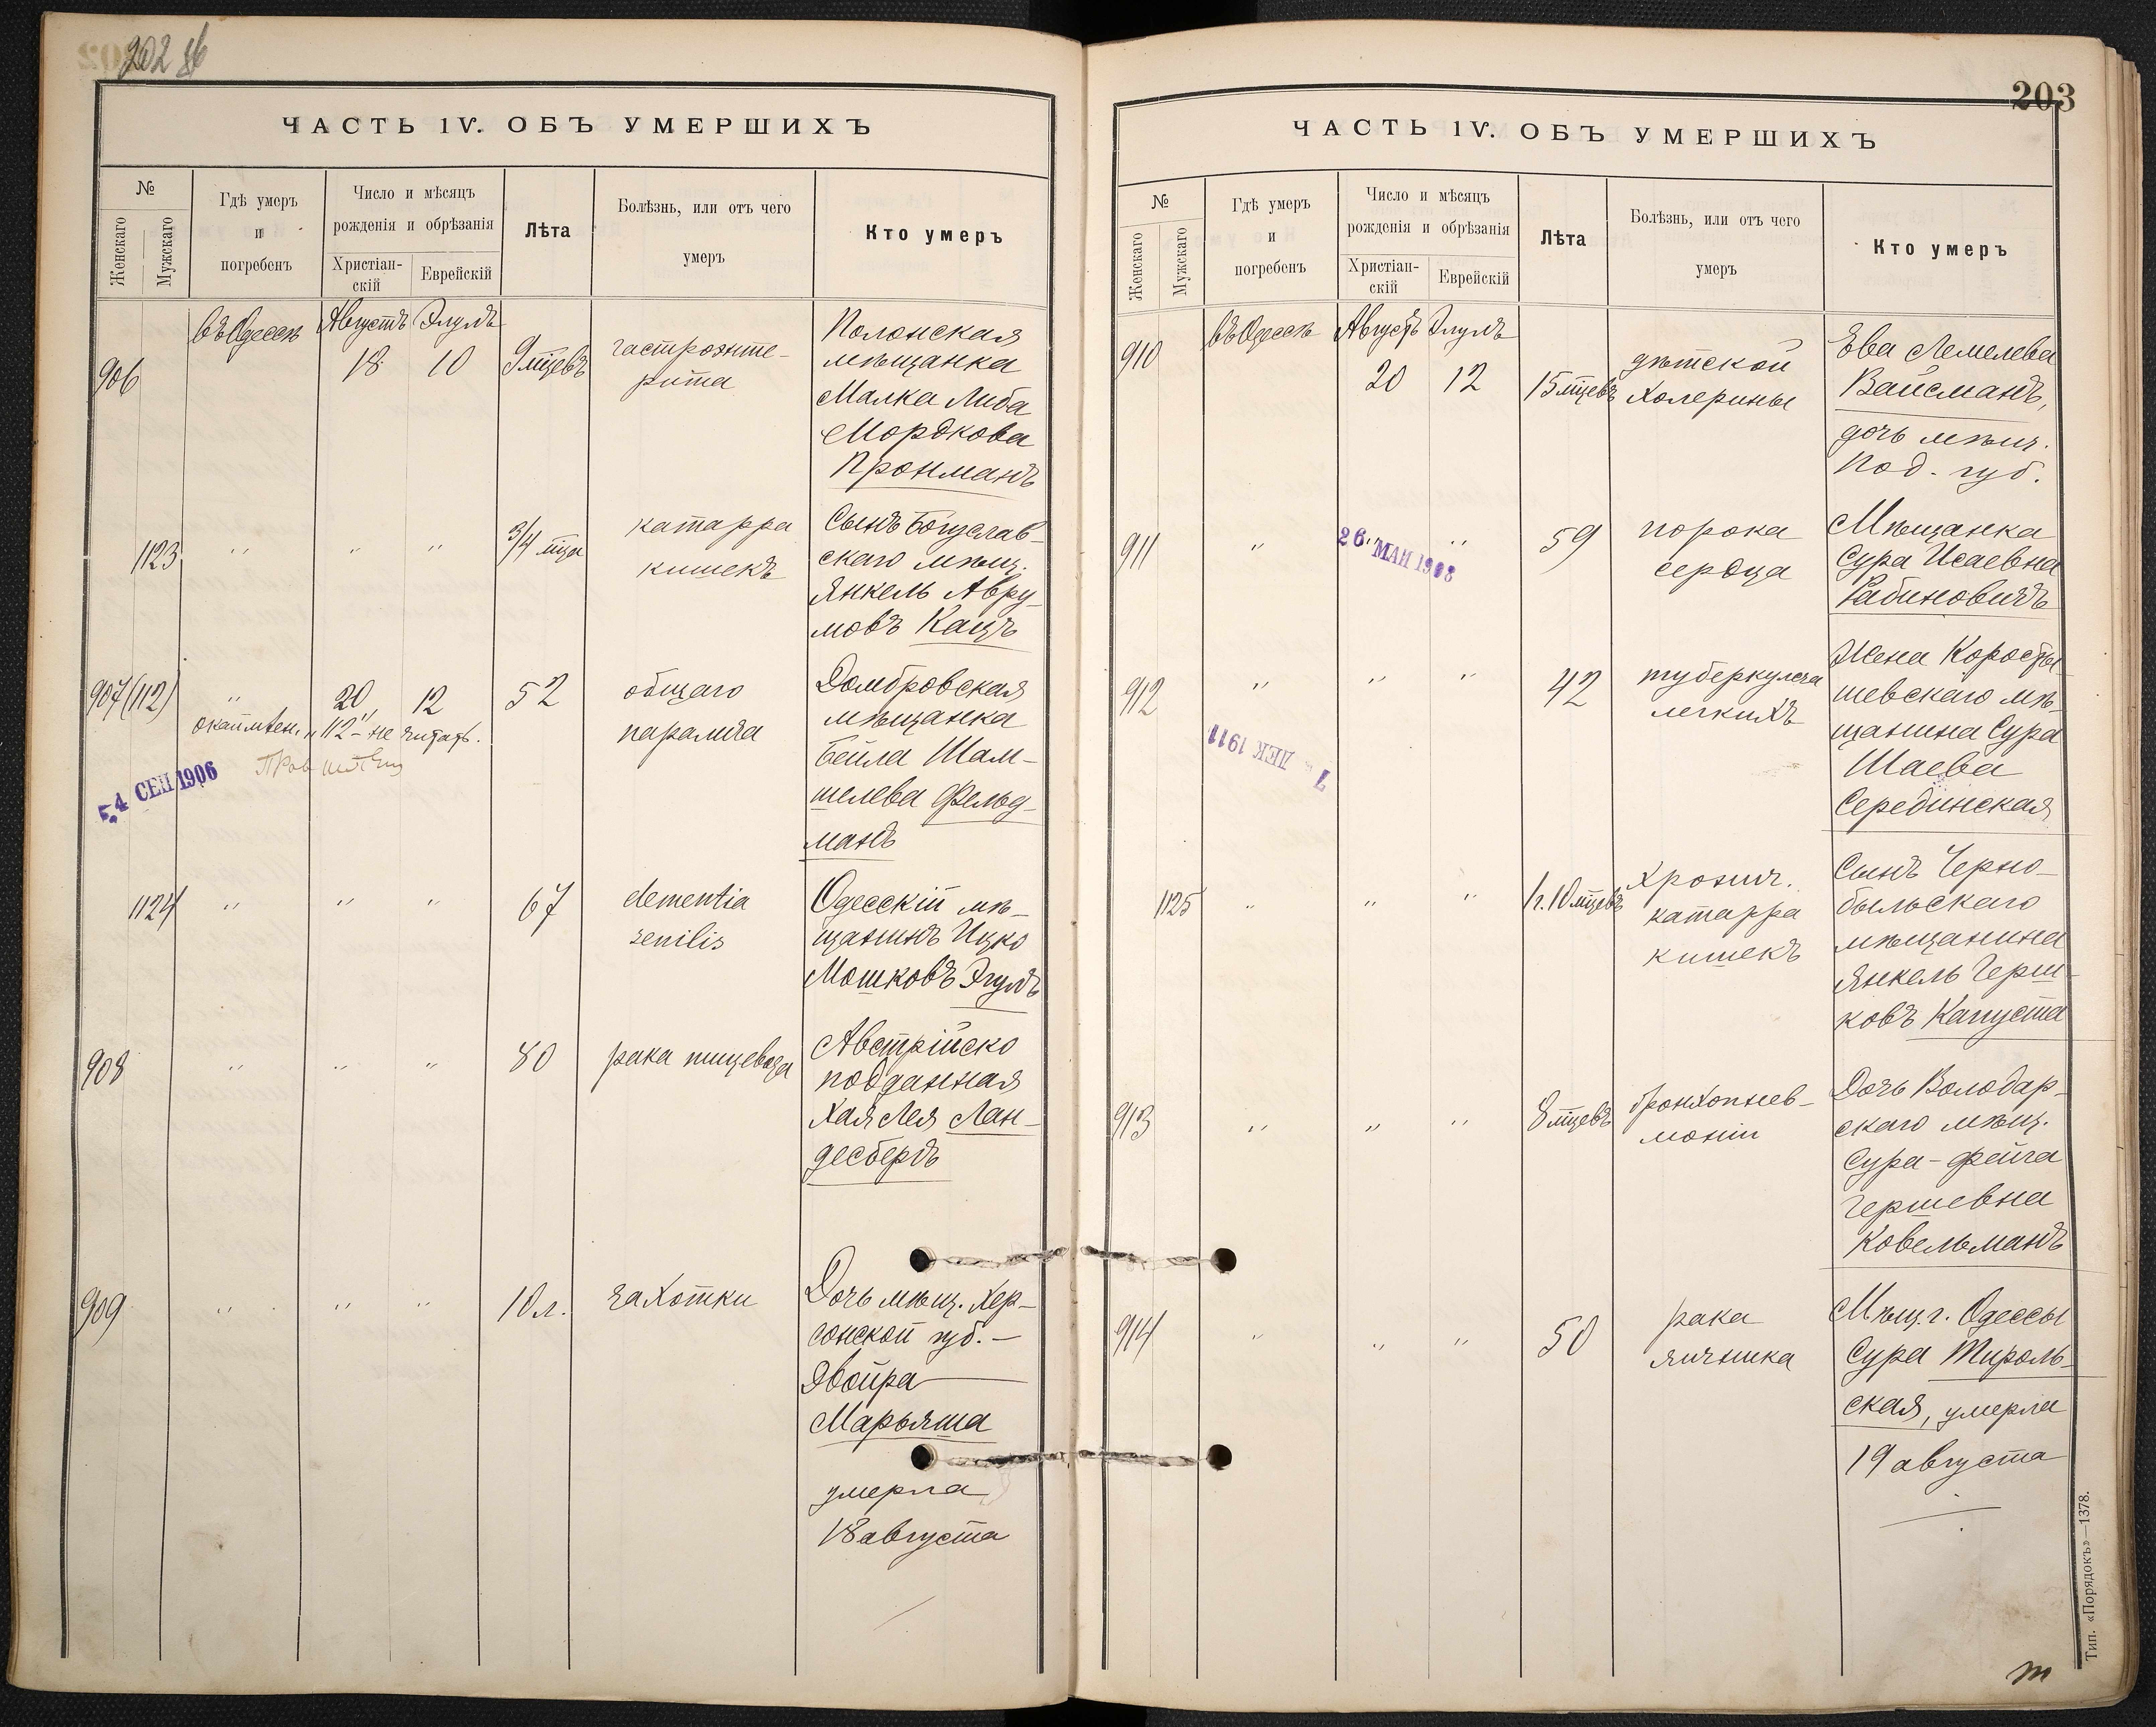 202 об
ЧАСТЬ IV. ОБЪ УМЕРШИХЪ
№
Женскаго
Мужскаго
Гдѣ умеръ
и
погребенъ
Число и мѣсяцъ
рожденія и обрѣзанія
Христіан-
скій
Еврейскій
Лѣта
Болѣзнь, или отъ чего
умеръ
Кто умеръ
906
въ Одессѣ
Августъ Элулъ
18 10
9 мцевъ
гастроэнте-
рита
Полонская
мѣщанка
Малка Либа
Мордкова
Пронманъ
1123
" " "
3/4 мца
катарра
кишекъ
Сынъ Богуслав-
скаго мѣщ.
Янкель Авру-
мовъ Кацъ
907 (112)
"
20 12
52
общаго
паралича
Домбровская
мѣщанка
Бейла Шам-
шелева Фельд-
манъ
"112" не читать.
5 4 СЕН 1906
1124
" " "
67
dementia
senilis
Одесскій мѣ-
щанинъ Ицко
Мошковъ Эгулъ
908
" " "
80
рака пищевода
Австрійско
подданная
Хая Лея Лан-
десбергъ
909
" " "
10 л.
чахотки
Дочь мѣщ. Хер-
сонской губ. —
Двойра
Марьяша
умерла
18 августа
203
ЧАСТЬ IV. ОБЪ УМЕРШИХЪ
№
Женскаго
Мужскаго
Гдѣ умеръ
и
погребенъ
Число и мѣсяцъ
рожденія и обрѣзанія
Христіан-
скій
Еврейскій
Лѣта
Болѣзнь, или отъ чего
умеръ
Кто умеръ
910
въ Одессѣ
Августъ Элулъ
20 12
15 мцевъ
дѣтской
холерины
Ева Лемелева
Вайсманъ,
дочь мѣщ.
Под. губ.
911
" " "
26 МАЙ 1908
59
порока
сердца
Мѣщанка
Сура Исаевна
Рабиновичъ
912
" " "
42
туберкулеза
легкихъ
Жена Коросты-
шевскаго мѣ-
щанина Сура
Шаева
Серединская
7 ДЕК 1911
1125
" " "
1 г. 10 мцевъ
Хронич.
катарра
кишекъ
Сынъ Черно-
быльскаго
мѣщанина
Янкель Герш-
ковъ Капуста
913
" " "
8 мцевъ
бронхопнев-
моніи
Дочь Володар-
скаго мѣщ.
Сура-Фейга
Гершевна
Ковельманъ
914
" " "
50
рака
яичника
Мѣщ. г. Одессы
Сура Тироль-
ская, умерла
19 августа
Тип. «Порядокъ»—1378.